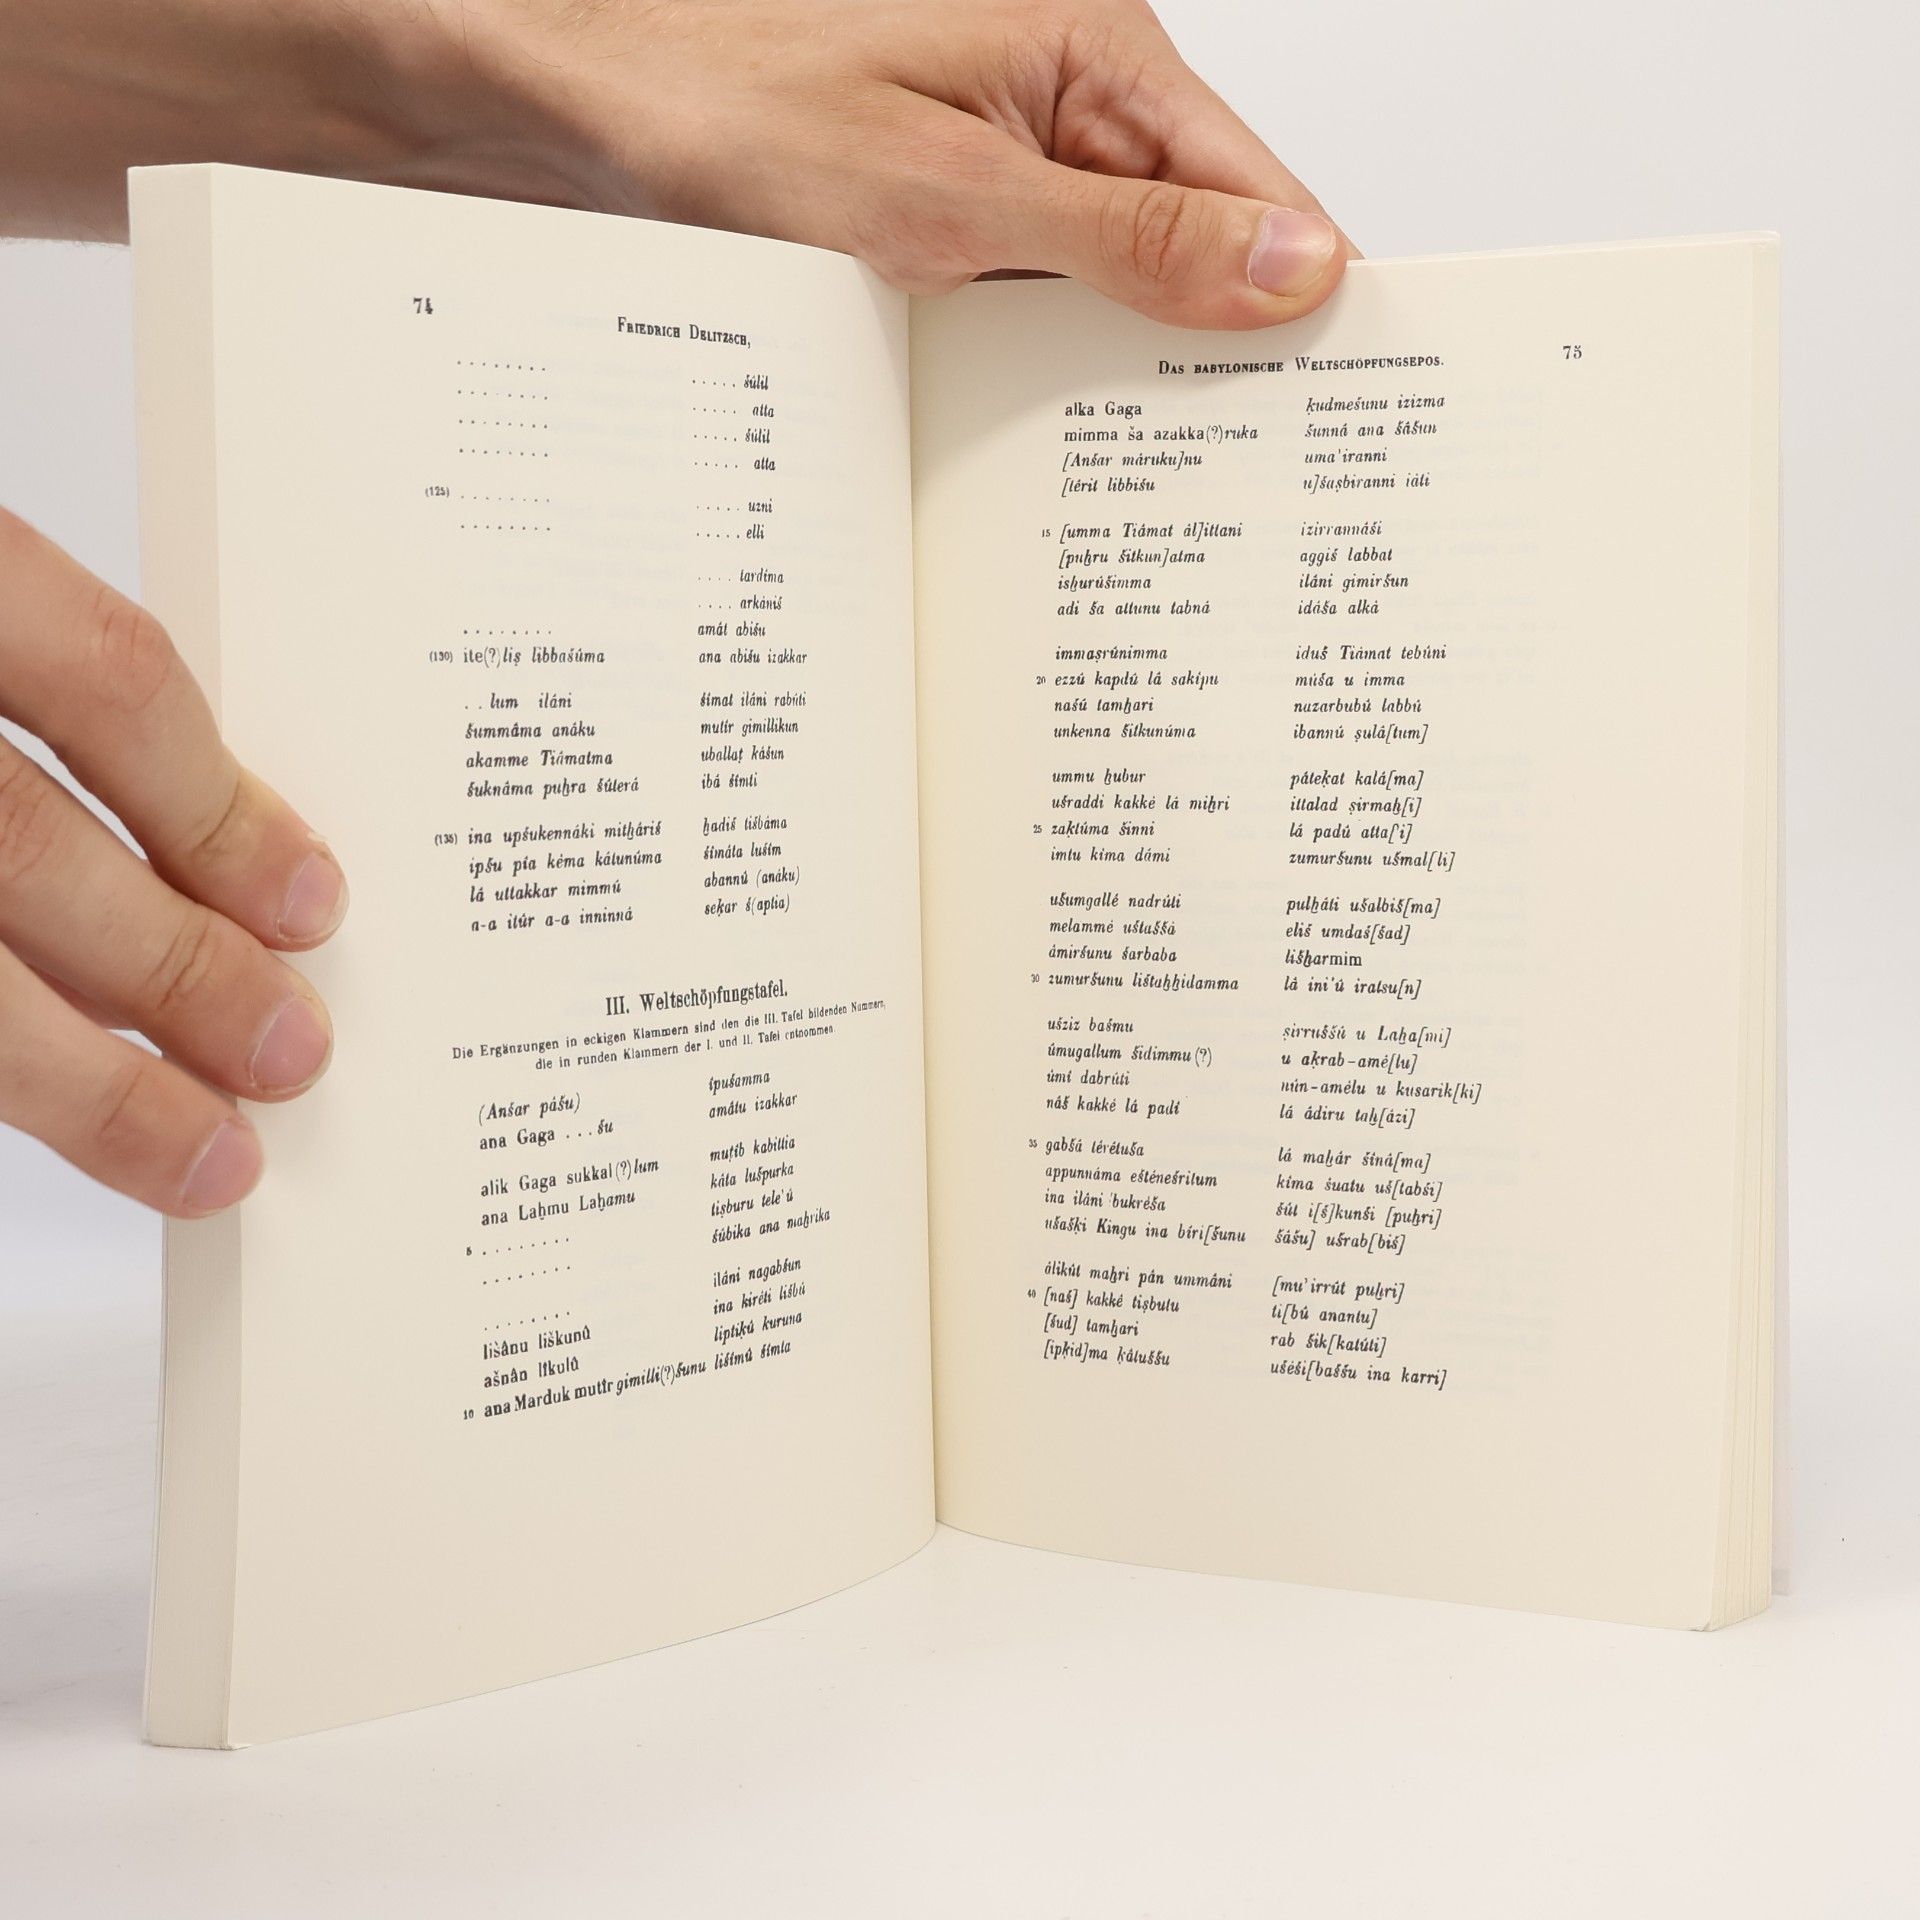 74
FRIEDRICH DELITZSCH,
. . . . . . . . . . . . . šúlil
. . . . . . . . . . . . . atta
. . . . . . . . . . . . . šúlil
. . . . . . . . . . . . . atta
(125) . . . . . . . . . . . . . uzni
. . . . . . . . . . . . . elli
. . . . tardíma
. . . . arkániš
. . . . . . . . amát abišu
(130) ite(?)liṣ libbašúma ana abišu izakkar
. . lum iláni šimat iláni rabúti
šummâma anáku mutír gimillikun
akamme Tiâmatma uballaṭ kášun
šuknâma puḫra šúterá ibá šímti
(135) ina upšukennáki mitḫáriš ḫadiš tišbáma
ipšu pía kéma kátunúma šímáta lušim
lá uttakkar mimmú abannú (anáku)
a-a itúr a-a inninná seḳar š(aptia)
III. Weltschöpfungstafel.
Die Ergänzungen in eckigen Klammern sind den die III. Tafel bildenden Nummern,
die in runden Klammern der I. und II. Tafel entnommen.
(Anšar pášu) ípušamma
ana Gaga . . . šu amâtu izakkar
alik Gaga sukkal(?)lum muṭíb kabittia
ana Laḫmu Laḫamu káta lušpurka
5 . . . . . . . . tiṣburu tele'ú
. . . . . . . . šúbika ana maḫrika
. . . . . . . . iláni nagabšun
lišânu liškunû ina kiréti lišbú
ašnân lîkulû liptiḳú kuruna
10 ana Marduk mutîr gimilli(?)šunu lišímú šímta
75
DAS BABYLONISCHE WELTSCHÖPFUNGSEPOS.
alka Gaga ḳudmešunu izizma
mimma ša azakka(?)ruka šunná ana šâšun
[Anšar máruku]nu uma'iranni
[térit libbišu u]šaṣbiranni iáti
15 [umma Tiâmat ál]ittani izirrannáši
[puḫru šitkun]atma aggiš labbat
isḫurúšimma iláni gimiršun
adi ša attunu tabná idáša alká
immaṣrúnimma iduš Tiâmat tebúni
20 ezzú kapdú lâ sakípu múša u imma
našú tamḫari nazarbubú labbú
unkenna šitkunúma ibannú ṣulâ[tum]
ummu ḫubur páteḳat kalá[ma]
ušraddi kakké lá miḫri ittalad ṣirmaḫ[i]
25 zaḳtúma šinni lá padú atta['i]
imtu kíma dámi zumuršunu ušmal[li]
ušumgallé nadrúti pulḫáti ušalbiš[ma]
melammé uštaššá eliš umdaš[šad]
ámiršunu šarbaba lišḫarmim
30 zumuršunu lištaḫḫidamma lâ ini'ú iratsu[n]
ušziz bašmu ṣirruššú u Laḫa[mi]
úmugallum šidimmu(?) u aḳrab-amé[lu]
úmí dabrúti nún-amélu u kusarik[ki]
náš kakké lá padí lá ádiru taḫ[ázi]
35 gabšá térétuša lá maḫár šíná[ma]
appunnáma ešténešritum kíma šuatu uš[tabši]
ina iláni bukréša šút i[š]kunši [puḫri]
ušašḳi Kingu ina bíri[šunu šâšu] ušrab[biš]
álikút maḫri pân ummâni [mu'irrút puḫri]
40 [naš] kakkê tiṣbutu ti[bû anantu]
[šud] tamḫari rab šik[katúti]
[ipḳid]ma ḳâtuššu ušéši[baššu ina karri]